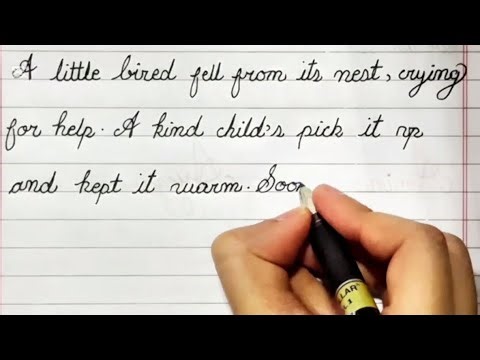 A little bired fell from its nest, crying
for help. A kind child's pick it up
and kept it warm. Soon